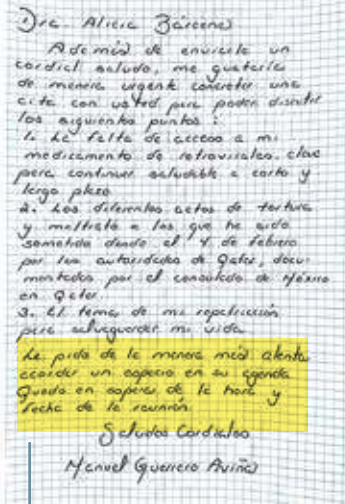 Dra. Alicia Bárcena
Además de enviarle un
cordial saludo, me gustaría
de manera urgente concretar una
cita con usted para poder discutir
los siguientes puntos:
1. La falta de acceso a mi
medicamento de retrovirales, clave
para continuar saludable a corto y
largo plazo
2. Los diferentes actos de tortura
y maltrato a los que he sido
sometido desde el 4 de febrero
por las autoridades de Qatar, docu-
mentados por el consulado de México
en Qatar.
3. El tema de mi repatriación
para salvaguardar mi vida
Le pido de la manera más atenta
acordar un espacio en su agenda
Quedo en espera de la hora y
fecha de la reunión.
Saludos Cordiales
Manuel Guerrero Aviña